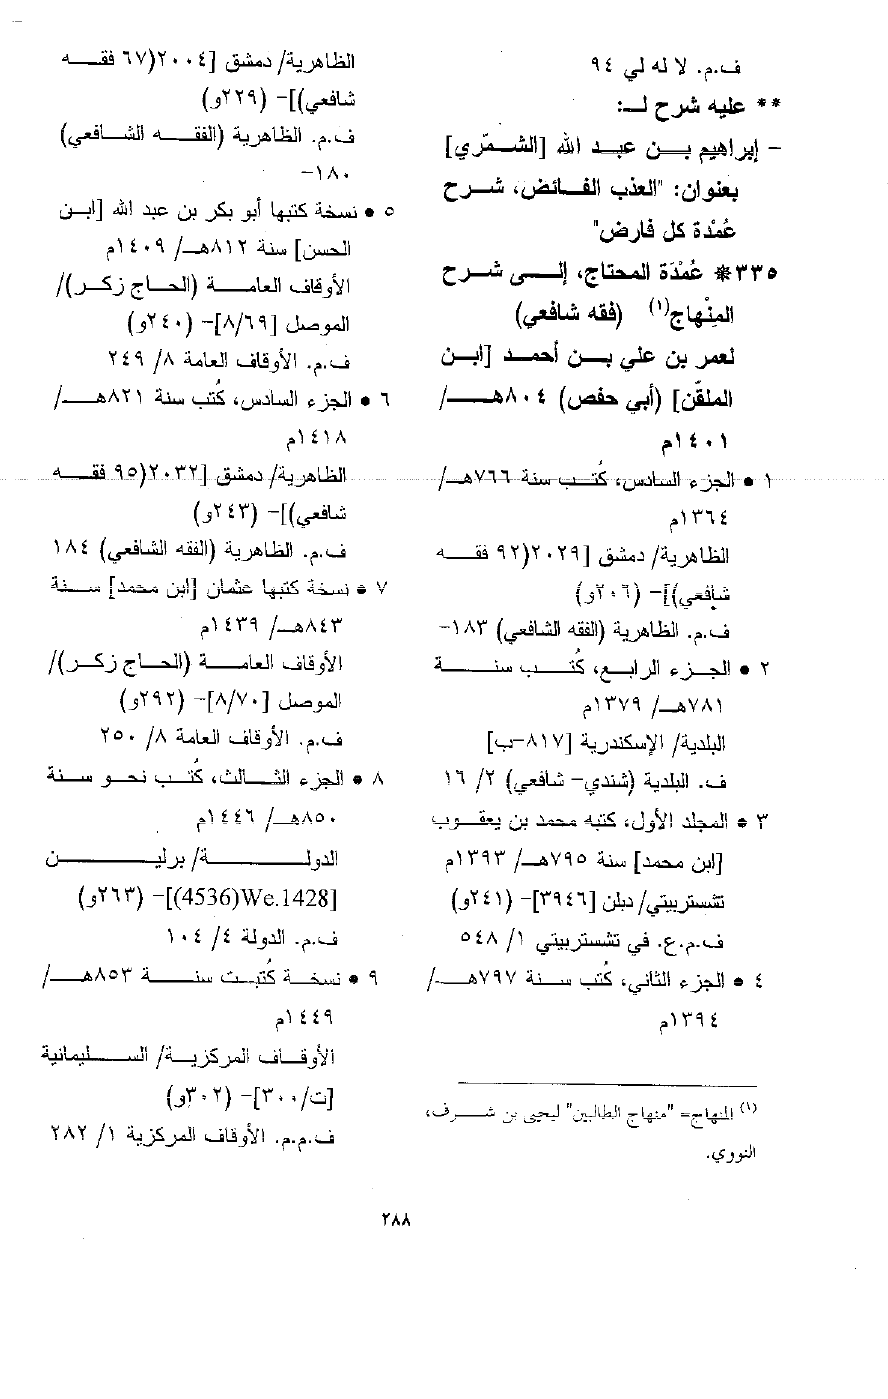 ف.م. لا له لي ٩٤
** عليه شرح لـ:
- إبراهيم بن عبد الله [الشمّري]
بعنوان: "العذب الفائض، شرح
عُمْدة كل فارض"
٣٣٥* عُمْدَة المحتاج، إلى شرح
المِنْهاج(١) (فقه شافعي)
لعمر بن علي بن أحمد [ابن
الملقّن] (أبي حفص) ٨٠٤هـ/
١٤٠١م
١ • الجزء السادس، كُتب سنة ٧٦٦هـ/
١٣٦٤م
الظاهرية/ دمشق [٢٠٢٩(٩٢ فقه
شافعي)]- (٢٠٦و)
ف.م. الظاهرية (الفقه الشافعي) ١٨٣-
٢ • الجزء الرابع، كُتب سنة
٧٨١هـ/ ١٣٧٩م
البلدية/ الإسكندرية [٨١٧-ب]
ف. البلدية (شندي- شافعي) ٢/ ١٦
٣ • المجلد الأول، كتبه محمد بن يعقوب
[ابن محمد] سنة ٧٩٥هـ/ ١٣٩٣م
تشستربيتي/ دبلن [٣٩٤٦]- (٢٤١و)
ف.م.ع. في تشستربيتي ١/ ٥٤٨
٤ • الجزء الثاني، كُتب سنة ٧٩٧هـ/
١٣٩٤م
(١) المنهاج= "منهاج الطالبين" ليحيى بن شرف،
النووي.
الظاهرية/ دمشق [٢٠٠٤(٦٧ فقه
شافعي)]- (٢٢٩و)
ف.م. الظاهرية (الفقه الشافعي)
١٨٠-
٥ • نسخة كتبها أبو بكر بن عبد الله [ابن
الحسن] سنة ٨١٢هـ/ ١٤٠٩م
الأوقاف العامة (الحاج زكر)/
الموصل [٨/٦٩]- (٢٤٠و)
ف.م. الأوقاف العامة ٨/ ٢٤٩
٦ • الجزء السادس، كُتب سنة ٨٢١هـ/
١٤١٨م
الظاهرية/ دمشق [٢٠٣٢(٩٥ فقه
شافعي)]- (٢٤٣و)
ف.م. الظاهرية (الفقه الشافعي) ١٨٤
٧ • نسخة كتبها عثمان [ابن محمد] سنة
٨٤٣هـ/ ١٤٣٩م
الأوقاف العامة (الحاج زكر)/
الموصل [٨/٧٠]- (٢٩٢و)
ف.م. الأوقاف العامة ٨/ ٢٥٠
٨ • الجزء الثالث، كُتب نحو سنة
٨٥٠هـ/ ١٤٤٦م
الدولة/ برلين
[We.1428(4536)]- (٢٦٣و)
ف.م. الدولة ٤/ ١٠٤
٩ • نسخة كُتبت سنة ٨٥٣هـ/
١٤٤٩م
الأوقاف المركزية/ السليمانية
[ت/٣٠٠]- (٣٠٢و)
ف.م.م. الأوقاف المركزية ١/ ٢٨٢
٢٨٨